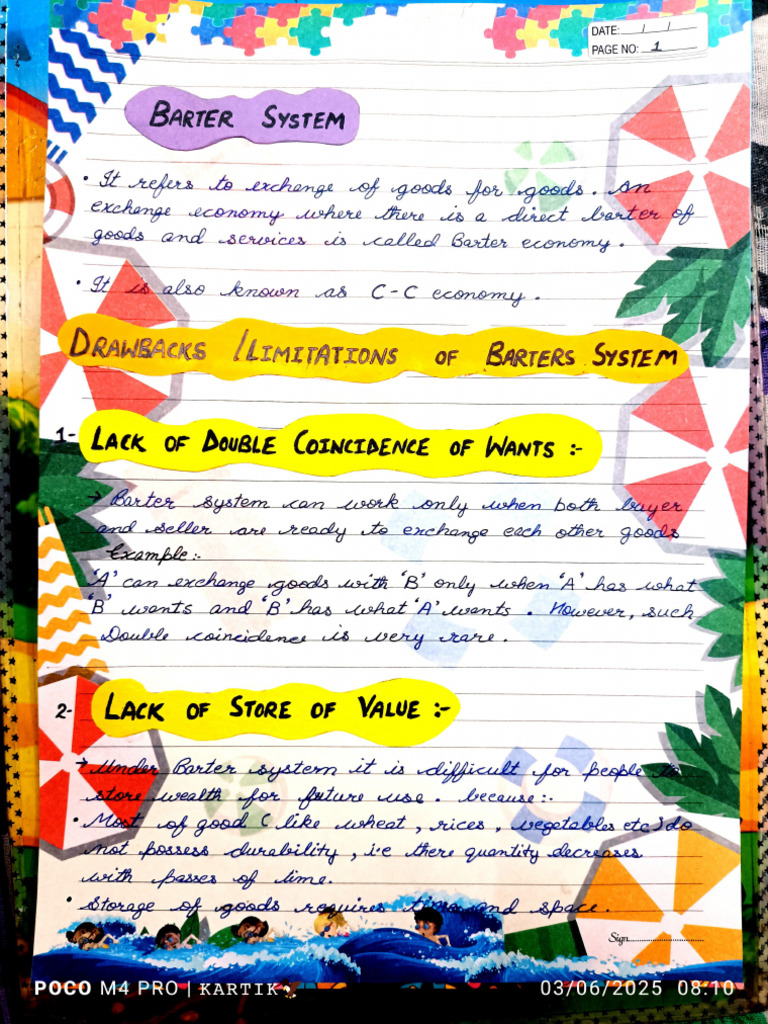 DATE: / /
PAGE NO: 1
BARTER SYSTEM
• It refers to exchange of goods for goods. An
exchange economy where there is a direct barter of
goods and services is called Barter economy.
• It is also known as C-C economy.
DRAWBACKS /LIMITATIONS OF BARTERS SYSTEM
1- LACK OF DOUBLE COINCIDENCE OF WANTS :-
→ Barter system can work only when both buyer
and seller are ready to exchange each other goods
Example:-
'A' can exchange goods with 'B' only when 'A' has what
'B' wants and 'B' has what 'A' wants. However, such
Double coincidence is very rare.
2- LACK OF STORE OF VALUE :-
→ Under Barter system it is difficult for people to
store wealth for future use. because:-
• Most of good ( like wheat, rices, vegetables etc) do
not possess durability, i.e there quantity decreases
with passes of time.
• Storage of goods requires time and space.
Sign
POCO M4 PRO | KARTIK
03/06/2025 08:10